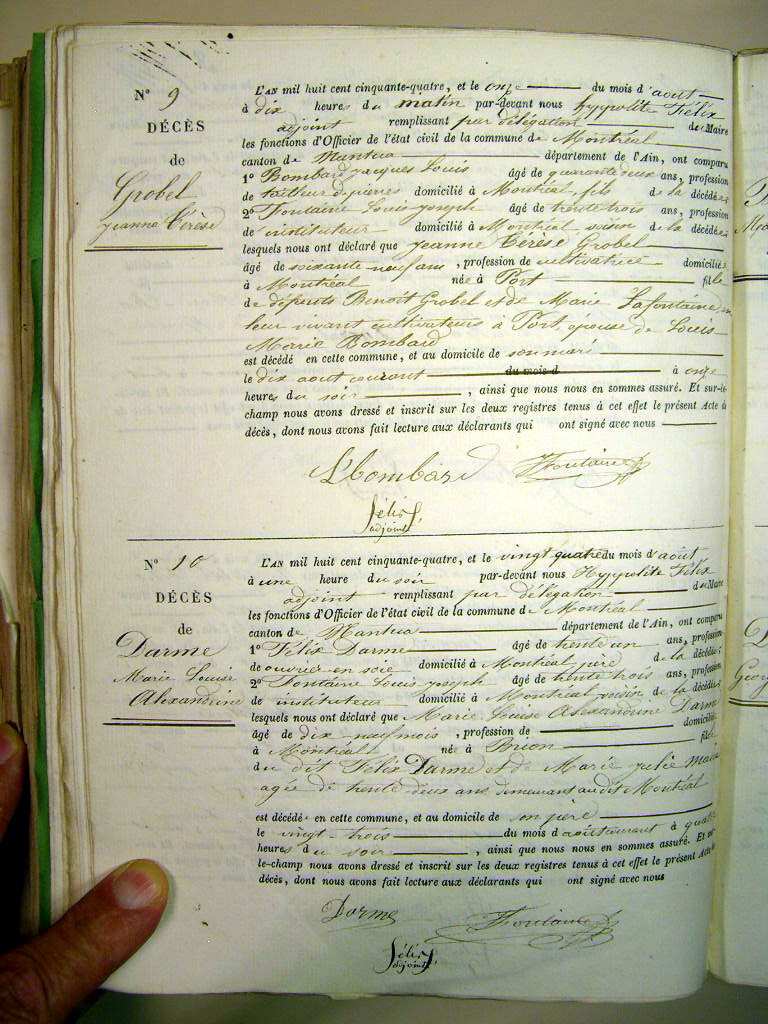 N° 9
DÉCÈS
de
Grobel
Jeanne Térèse
L'AN mil huit cent cinquante-quatre, et le onze du mois d'août
à dix heures du matin par-devant nous hyppolite Félix
adjoint remplissant par délégation de Maire
les fonctions d'Officier de l'état civil de la commune de Montréal
canton de Nantua département de l'Ain, ont comparu
1° Bombard Jacques Louis âgé de quarante deux ans, profession
de tailleur de pierres domicilié à Montréal, fils de la décédée
2° Fontaine Louis Joseph âgé de trente trois ans, profession
de instituteur domicilié à Montréal voisin de la décédée
lesquels nous ont déclaré que Jeanne Térèse Grobel
âgé de soixante-neuf ans, profession de cultivatrice domicilié
à Montréal née à Port fille
de défunts Benoît Grobel et de Marie Lafontaine, en
leur vivant cultivateurs à Port, épouse de Louis
Marie Bombard
est décédé en cette commune, et au domicile de son mari
le dix août courant du mois d à onze
heures du soir, ainsi que nous nous en sommes assuré. Et sur-le-
champ nous avons dressé et inscrit sur les deux registres tenus à cet effet le présent Acte de
décès, dont nous avons fait lecture aux déclarants qui ont signé avec nous
L Bombard Fontaine
Félix
adjoint
N° 10
DÉCÈS
de
Darme
Marie Louise
Alexandrine
L'AN mil huit cent cinquante-quatre, et le vingt quatre du mois d'août
à une heure du soir par-devant nous Hyppolite Félix
adjoint remplissant par délégation de Maire
les fonctions d'Officier de l'état civil de la commune de Montréal
canton de Nantua département de l'Ain, ont comparu
1° Félix Darme âgé de trente un ans, profession
de ouvrier en soie domicilié à Montréal père de la décédée;
2° Fontaine Louis Joseph âgé de trente trois ans, profession
de instituteur domicilié à Montréal voisin de la décédée;
lesquels nous ont déclaré que Marie Louise Alexandrine Darme
âgé de dix-neuf mois, profession de domicilié
à Montréal né à Brion fille
du dit Félix Darme et de Marie Julie
agée de trente deux ans demeurant audit Montréal
est décédé en cette commune, et au domicile de son père
le vingt-trois du mois d'août courant à quatre
heures du soir, ainsi que nous nous en sommes assuré. Et sur-
le-champ nous avons dressé et inscrit sur les deux registres tenus à cet effet le présent Acte de
décès, dont nous avons fait lecture aux déclarants qui ont signé avec nous
Darme Fontaine
Félix
adjoint